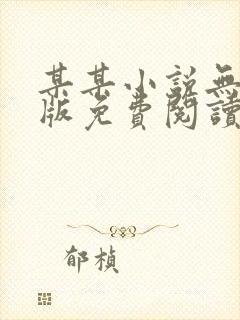 某某小說無
版免費閱讀
郁楨